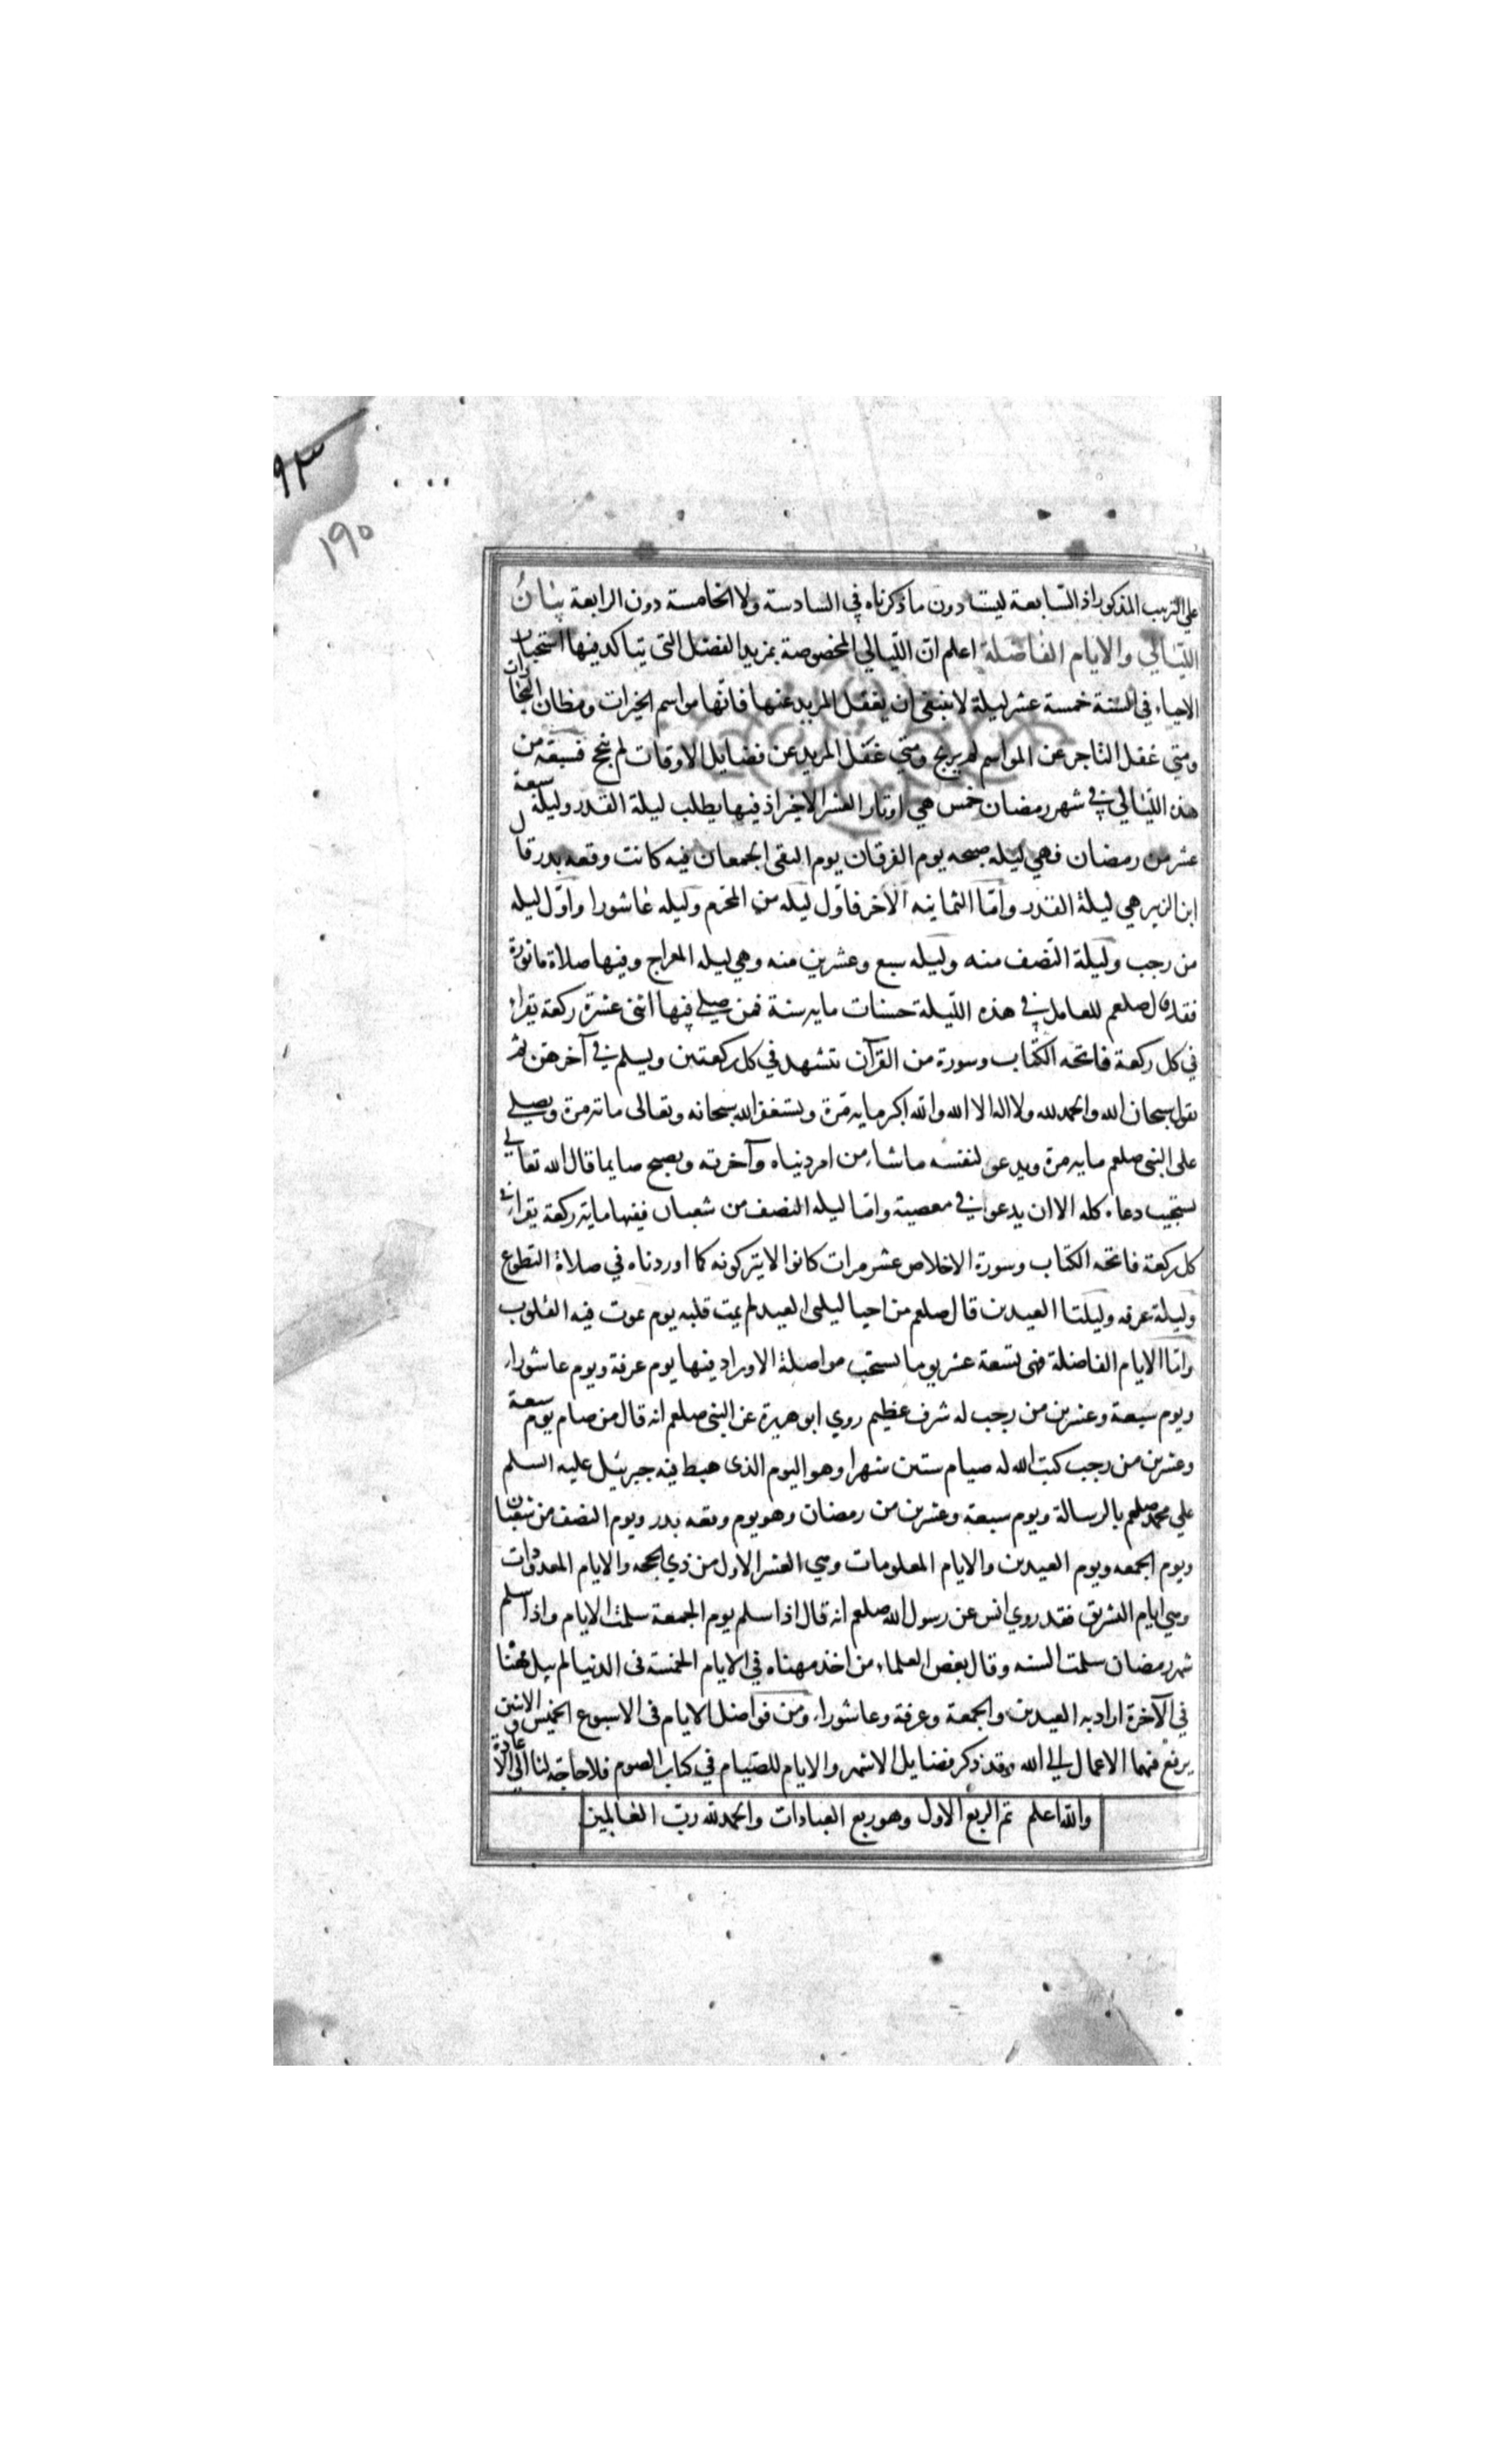 ٩٣
١٩٥
علي الترتيب المذكور اذ السّابعة ليست دون ما ذكرناه في السادسة ولا الخامسة دون الرابعة بيان
الليالي والايام الفاضلة اعلم ان اللّيالي المخصوصة بمزيد الفضل التى يتاكد فيها استحباب
الاحياء في السّنة خمسة عشر ليلة لا ينبغى ان يغفل المريد عنها فانّها مواسم الخيرات ومظان التجارات
ومتى غفل التاجر عن المواسم لم يربح ومتي غفل المريد عن فضايل الاوقات لم ينجح فسبعة من
هذه اللّيالي في شهر رمضان خمس هي اوتار العشر الاخير اذ فيها يطلب ليلة القدر وليلة سبعة
عشر من رمضان فهي ليله صبيحه يوم الفرقان يوم التقى الجمعان فيه كانت وقعه بدر قال
ابن الزبير هي ليلة القدر وامّا الثمانيه الاخر فاوّل ليله من المحرم وليله عاشورا واوّل ليله
من رجب وليلة النّصف منه وليله سبع وعشرين منه وهي ليله المعراج وفيها صلاة ماثورة
فقد قال صلعم للعامل في هذه اللّيلة حسنات مايه سنة فمن صلي فيها اثنى عشرة ركعة يقراء
في كل ركعة فاتحه الكتاب وسورة من القرآن يتشهد في كل ركعتين ويسلم في آخرهن ثم
يقول سبحان الله والحمد لله ولا اله الا الله والله اكبر مايه مرّة ويستغفر الله سبحانه وتعالى مائه مرة ويصلي
على النبى صلعم مايه مرة ويدعو لنفسه ما شاء من امر دنياه وآخرته ويصبح صايما قال الله تعالي
يستجيب دعاءه كله الا ان يدعوا في معصية وامّا ليله النصف من شعبان ففيها مايه ركعة يقراء في
كل ركعة فاتحه الكتاب وسورة الاخلاص عشر مرات كانوا لا يتركونه كما اوردناه في صلاة التطوع
وليلة عرفه وليلتا العيدين قال صلعم من احيا ليلتى العيد لم يمت قلبه يوم يموت فيه القلوب
وامّا الايام الفاضلة فهى تسعة عشر يوما يستحب مواصلة الاوراد فيها يوم عرفة ويوم عاشوراء
ويوم سبعة وعشرين من رجب له شرف عظيم روي ابو هريرة عن النبى صلعم انه قال من صام يوم سبعة
وعشرين من رجب كتب الله له صيام ستين شهرا وهو اليوم الذى هبط فيه جبرئيل عليه السلم
علي محمد صلعم بالرسالة ويوم سبعة وعشرين من رمضان وهو يوم وقعه بدر ويوم النصف من شعبان
ويوم الجمعه ويوم العيدين والايام المعلومات وهي العشر الاول من ذي الحجه والايام المعدودات
وهي ايام التشريق فقد روي انس عن رسول الله صلعم انه قال اذا سلم يوم الجمعة سلمت الايام واذا سلم
شهر رمضان سلمت السنه وقال بعض العلماء من اخذ مهناه في الايام الخمسة فى الدنيا لم ينل مهنا
في الآخرة اراد به العيدين والجمعة وعرفة وعاشوراء ومن فواضل الايام فى الاسبوع الخميس والاثنين
يرفع فيهما الاعمال الي الله وقد ذكر فضايل الاشهر والايام للصّيام في كتاب الصوم فلا حاجة لنا الي الاعادة
والله اعلم تم الربع الاول وهو ربع العبادات والحمد لله ربّ العالمين